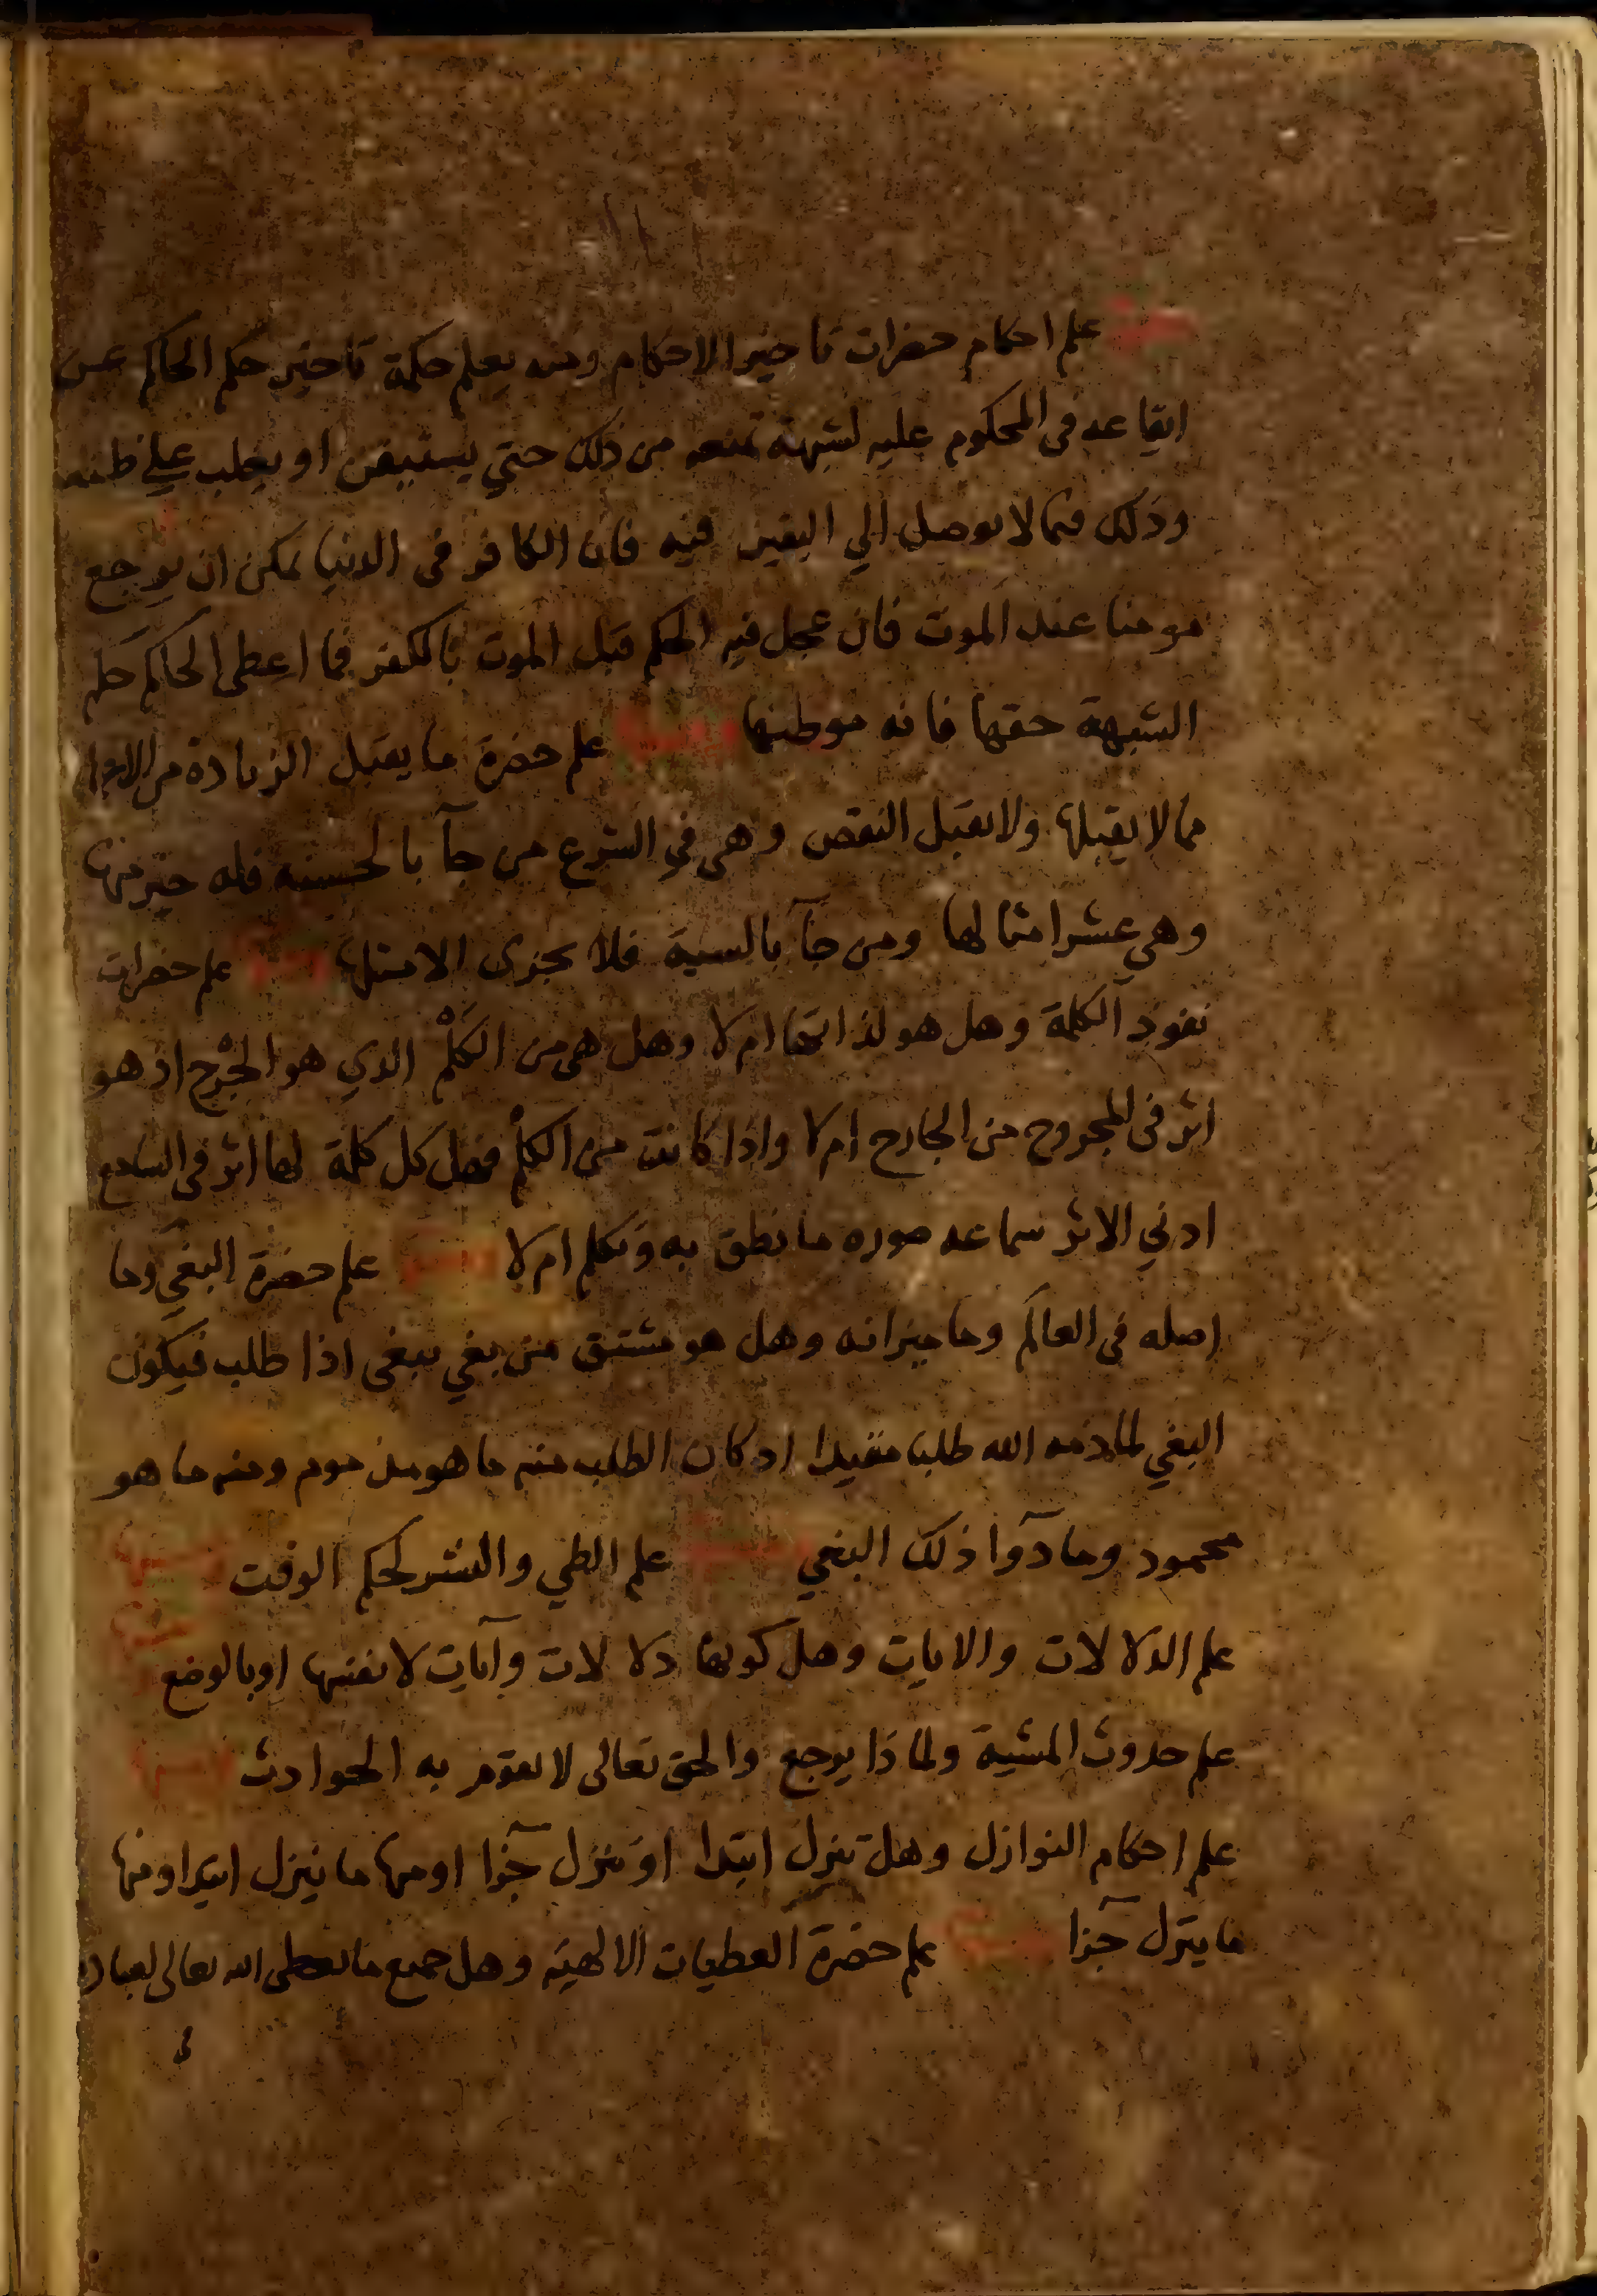 ومنها علم احكام حضرات تاخير الاحكام ومنه يعلم حكمة تاخير حكم الحاكم عن
ايقاعه في المحكوم عليه لشبهة تمنعه من ذلك حتي يستيقن او يغلب علي ظنه
وذلك فيما لا يوصل الي اليقين فيه فان الكافر في الدنيا يمكن ان يرجع
مومنا عند الموت فان عجل فيه الحكم قبل الموت بالكفر فما اعطي الحاكم حكم
الشبهة حقها فانه موطنها ومنها علم حضرة ما يقبل الزيادة من
مما لا يقبلها ولا يقبل النقص وهي في الشرع من جآ بالحسنه فله خير منها
وهي عشر امثالها ومن جآ بالسية فلا يجزى الا مثلها ومنها علم حضرات
نفوذ الكلمة وهل هو لذاتها ام لا وهل هي من الكَلْم الذي هو الجُرْح اذ هو
اثر في المجروح من الجارح ام لا واذا كانت من الكلْم فهل كل كلمة لها اثر في السامع
ادني الاثر سماعه صوره ما نطق به وتكلم ام لا ومنها علم حضرة البغي وما
اصله في العالم وما ميزانه وهل هو مشتق من بغي يبغي اذا طلب فيكون
البغي لما ذمه الله طلبا مقيدا اذ كان الطلب منه ما هو مذموم ومنه ما هو
محمود وما دوآ ذلك البغي ومنها علم الطي والنشر لحكم الوقت ومنها
علم الدلالات والايات وهل كونها دلالات وآيات لانفسها او بالوضع ومنها
علم حدوث المشية ولماذا يرجع والحق تعالى لا تقوم به الحوادث ومنها
علم احكام النوازل وهل تنزل ابتدا او تنزل جزآ او منها ما ينزل ابتدا ومنها
ما ينزل جزآ ومنها علم حضرة العطيات الالهية وهل جميع ما يعطي الله تعالى لعباده